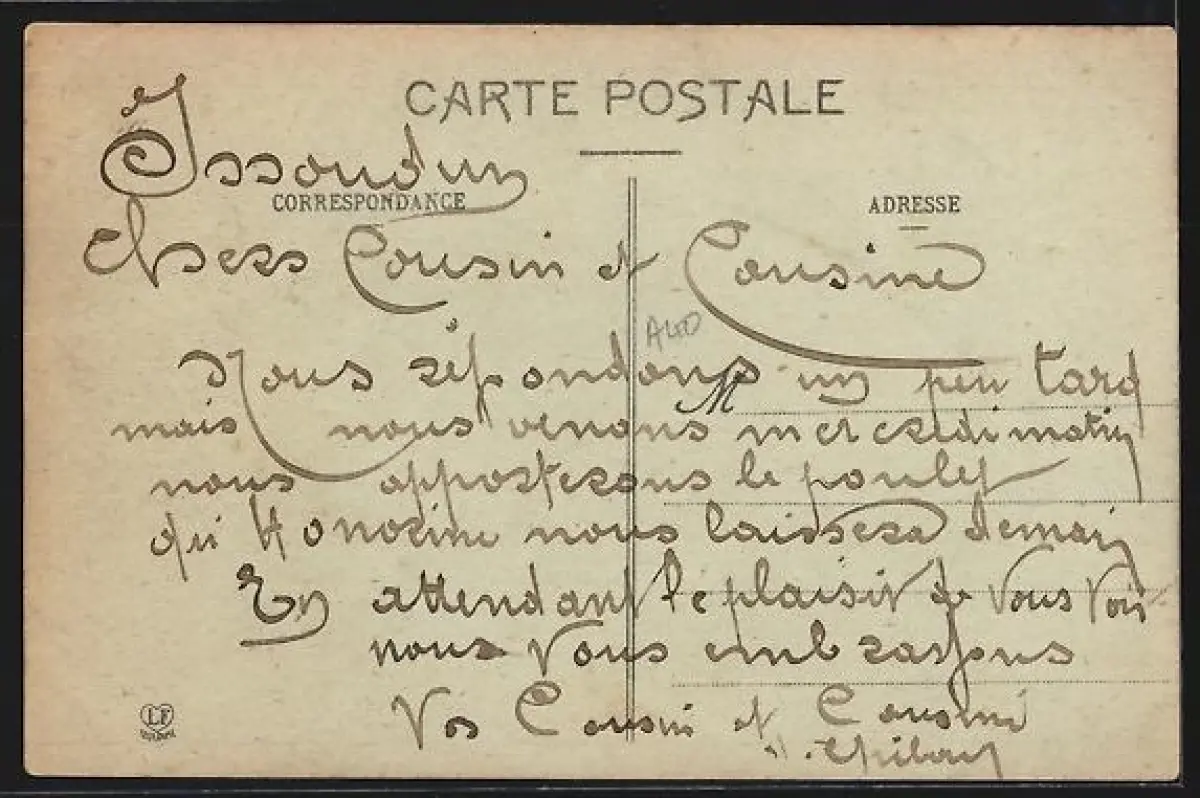 CARTE POSTALE
Issoudun
CORRESPONDANCE
ADRESSE
Chers Cousin et Cousine
Nous répondons un peu tard
mais nous venons mercredi matin
nous apporterons le poulet
qui Honorine nous laissera demain
En attendant le plaisir de Vous Voir
nous Vous embrassons
Vos Cousin et Cousine
LF